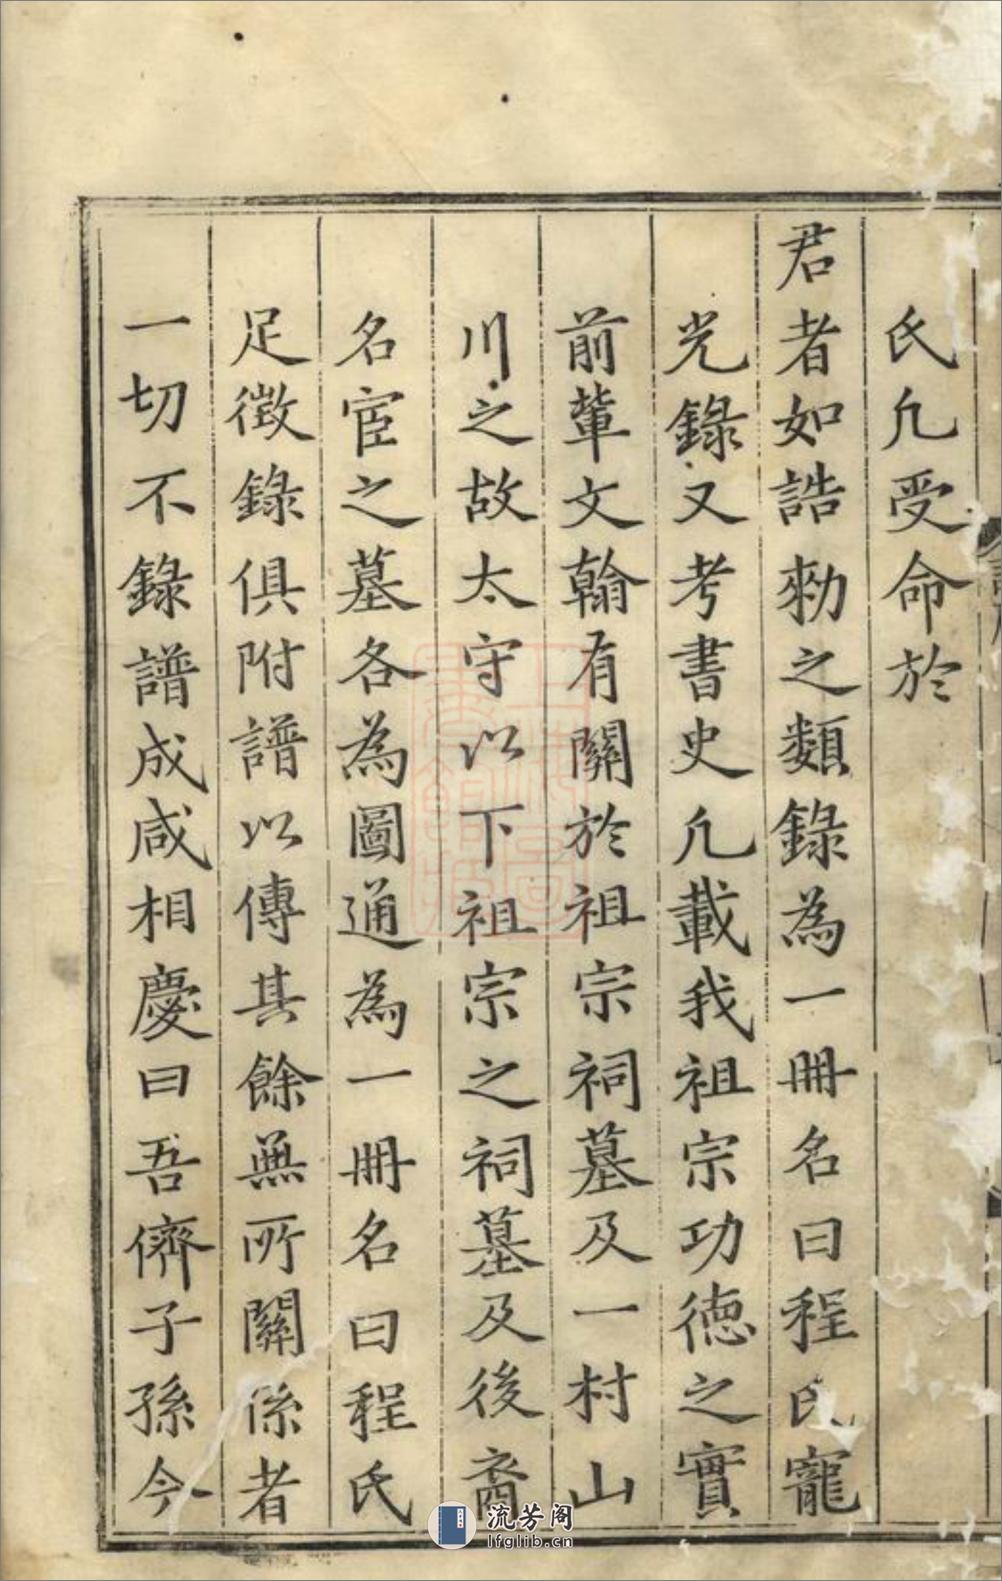 氏凢受命於
君者如誥勅之類錄為一冊名曰程氏寵
光錄又考書史凢載我祖宗功德之實
前輩文翰有關於祖宗祠墓及一村山
川之故太守以下祖宗之祠墓及後裔
名宦之墓各為圖通為一冊名曰程氏
足徵錄俱附譜以傳其餘無所關係者
一切不錄譜成咸相慶曰吾儕子孫今
流芳阁
lfglib.cn